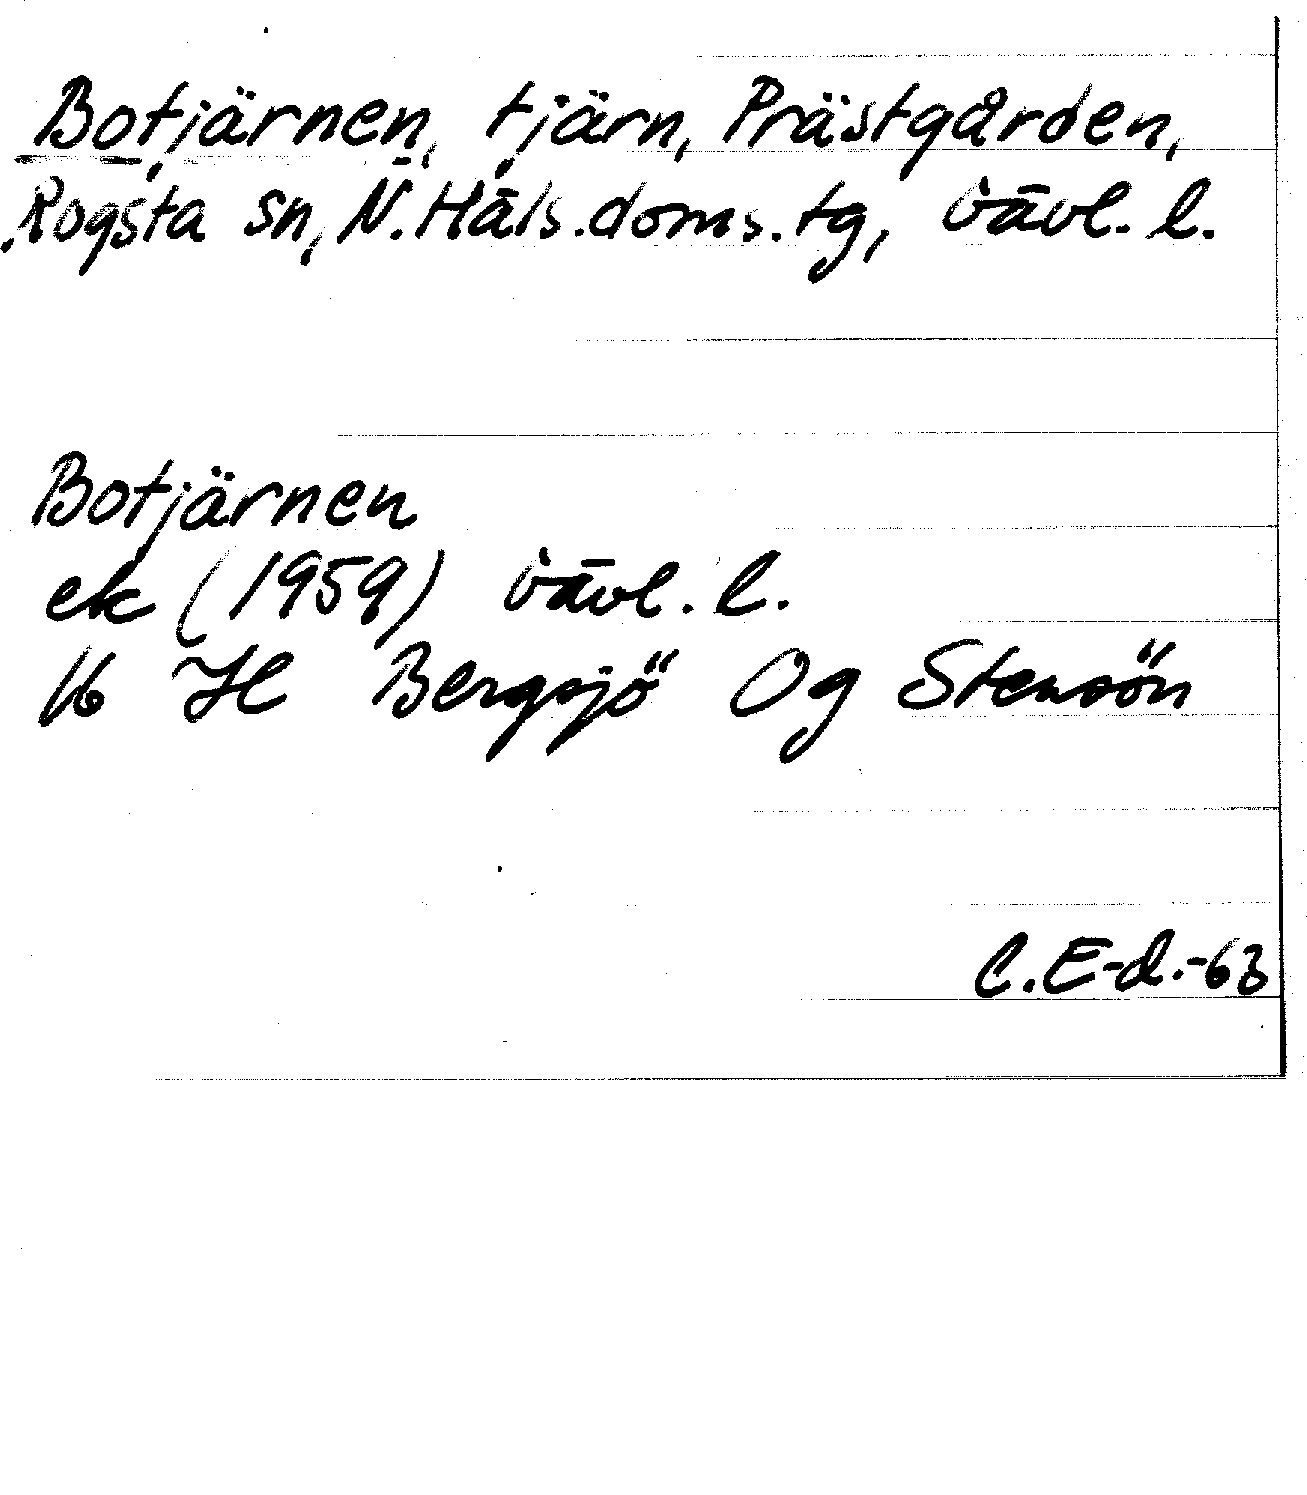 Botjärnen, tjärn, Prästgården,
Rogsta sn, N. Häls. doms. tg, Gävl. l.
Botjärnen
ek (1959) Gävl. l.
16 H Bergsjö Og Stensön
C. E-d.-63